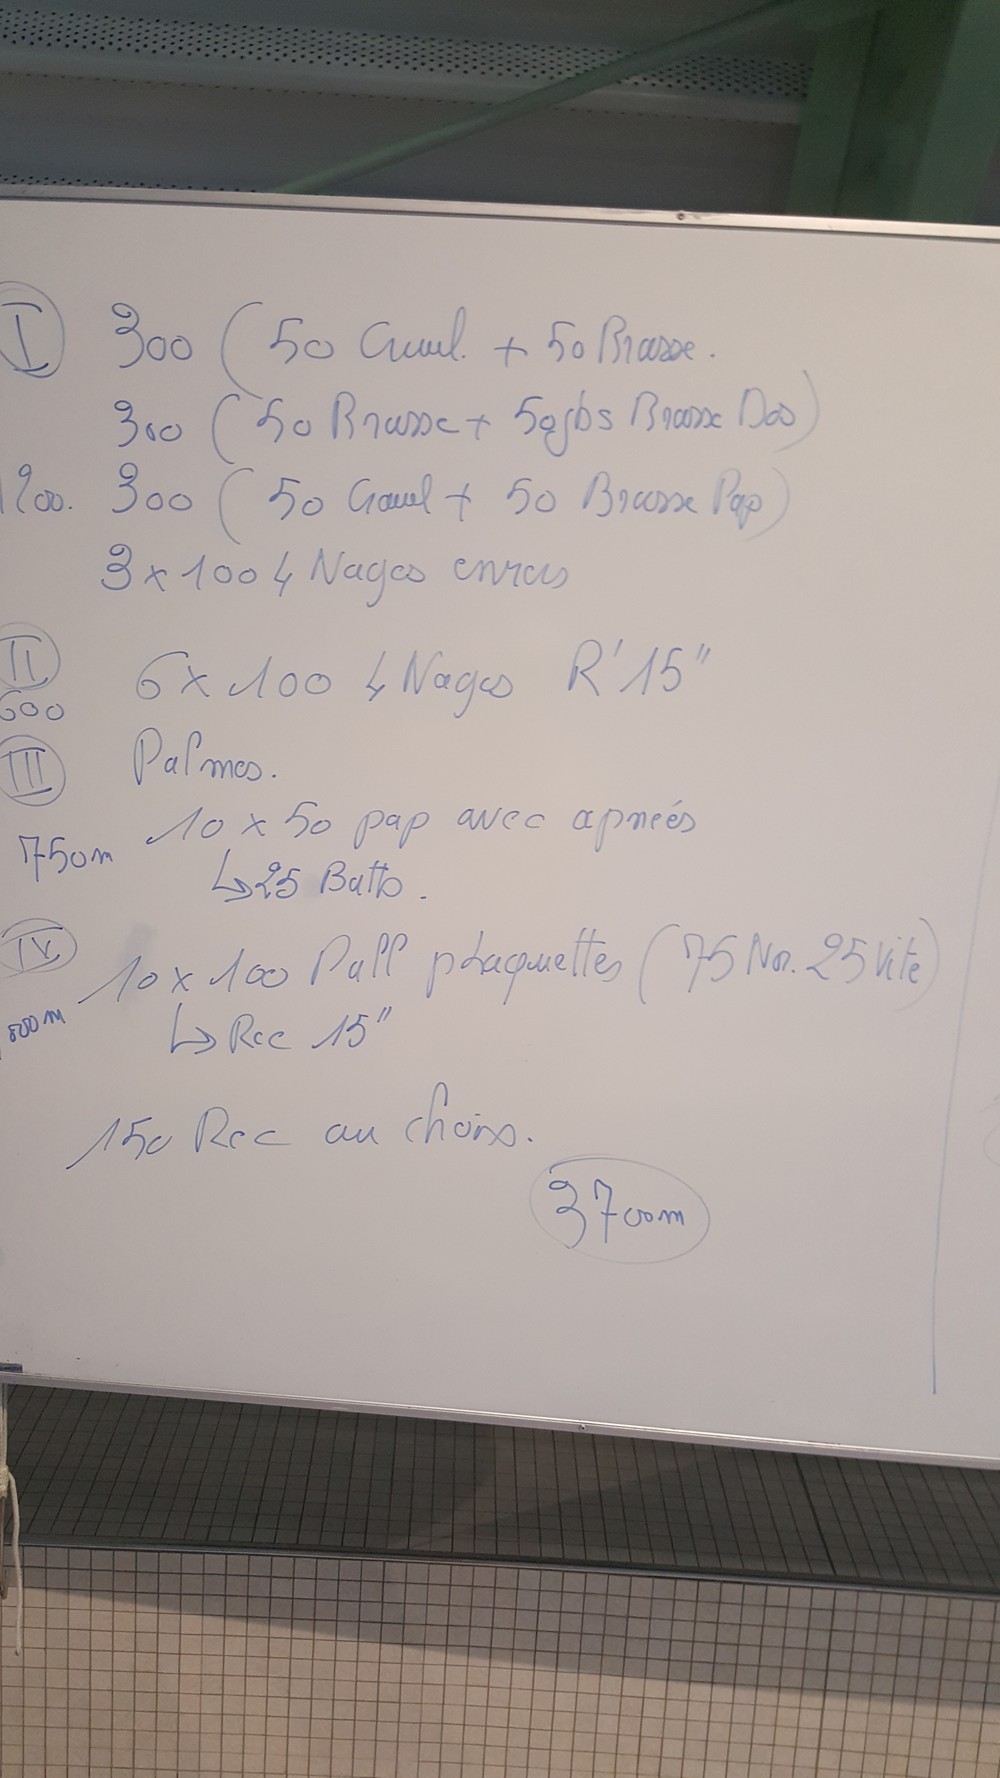 I 300 ( 50 Crawl. + 50 Brasse.
300 ( 50 Brasse + 50 jbs Brasse Dos )
1200. 300 ( 50 Crawl + 50 Brasse Pap )
3 x 100 4 Nages
II 6 x 100 4 Nages R' 15"
600
III Palmes.
10 x 50 pap avec apnées
750m
↳ 25 Batts.
IV 10 x 100 Pull plaquettes ( 75 Nor. 25 Vite )
↳ Rec 15"
150 Rec au choix.
3700m